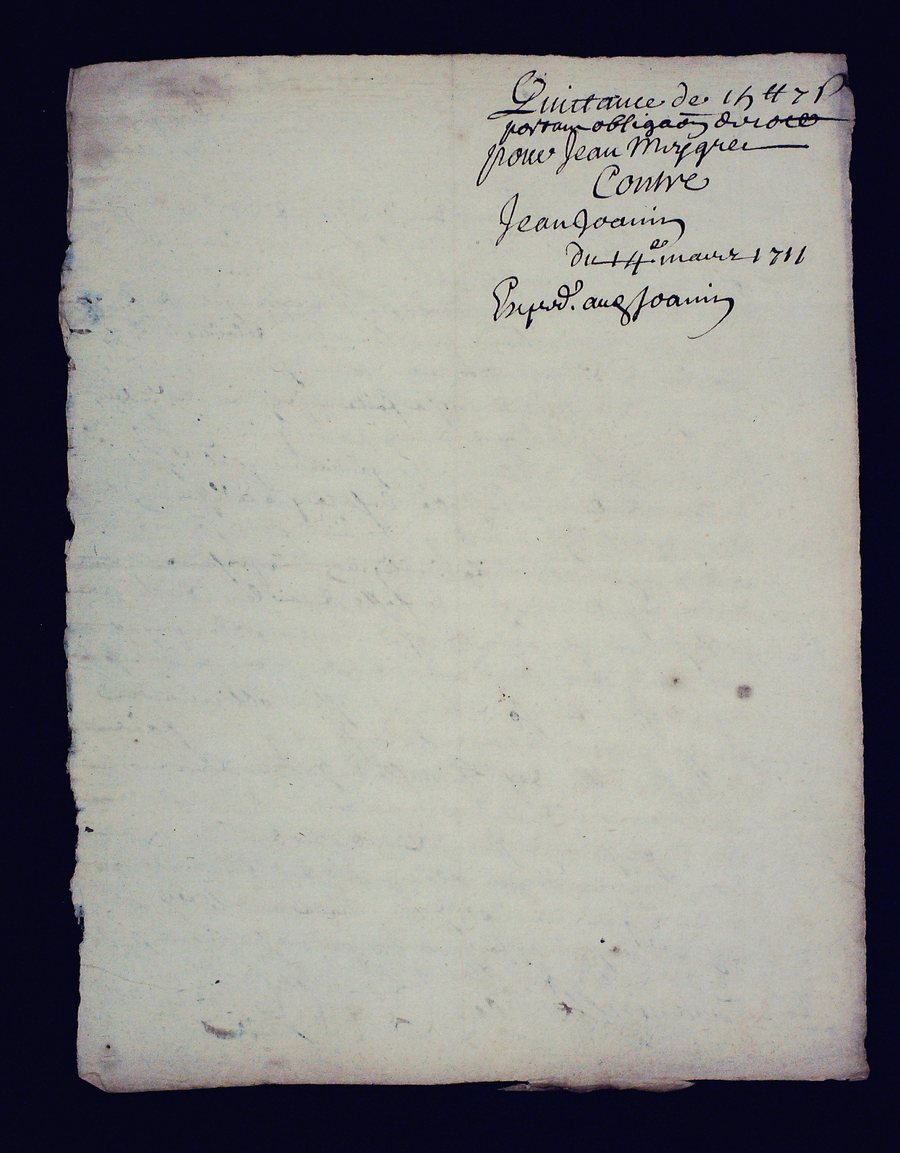 Quittance de 15 ₶ 7 s
portant obligaõn de
pour Jean Meygre
Contre
Jean Joanin
du 14e mars 1711
Exped. aud Joanin